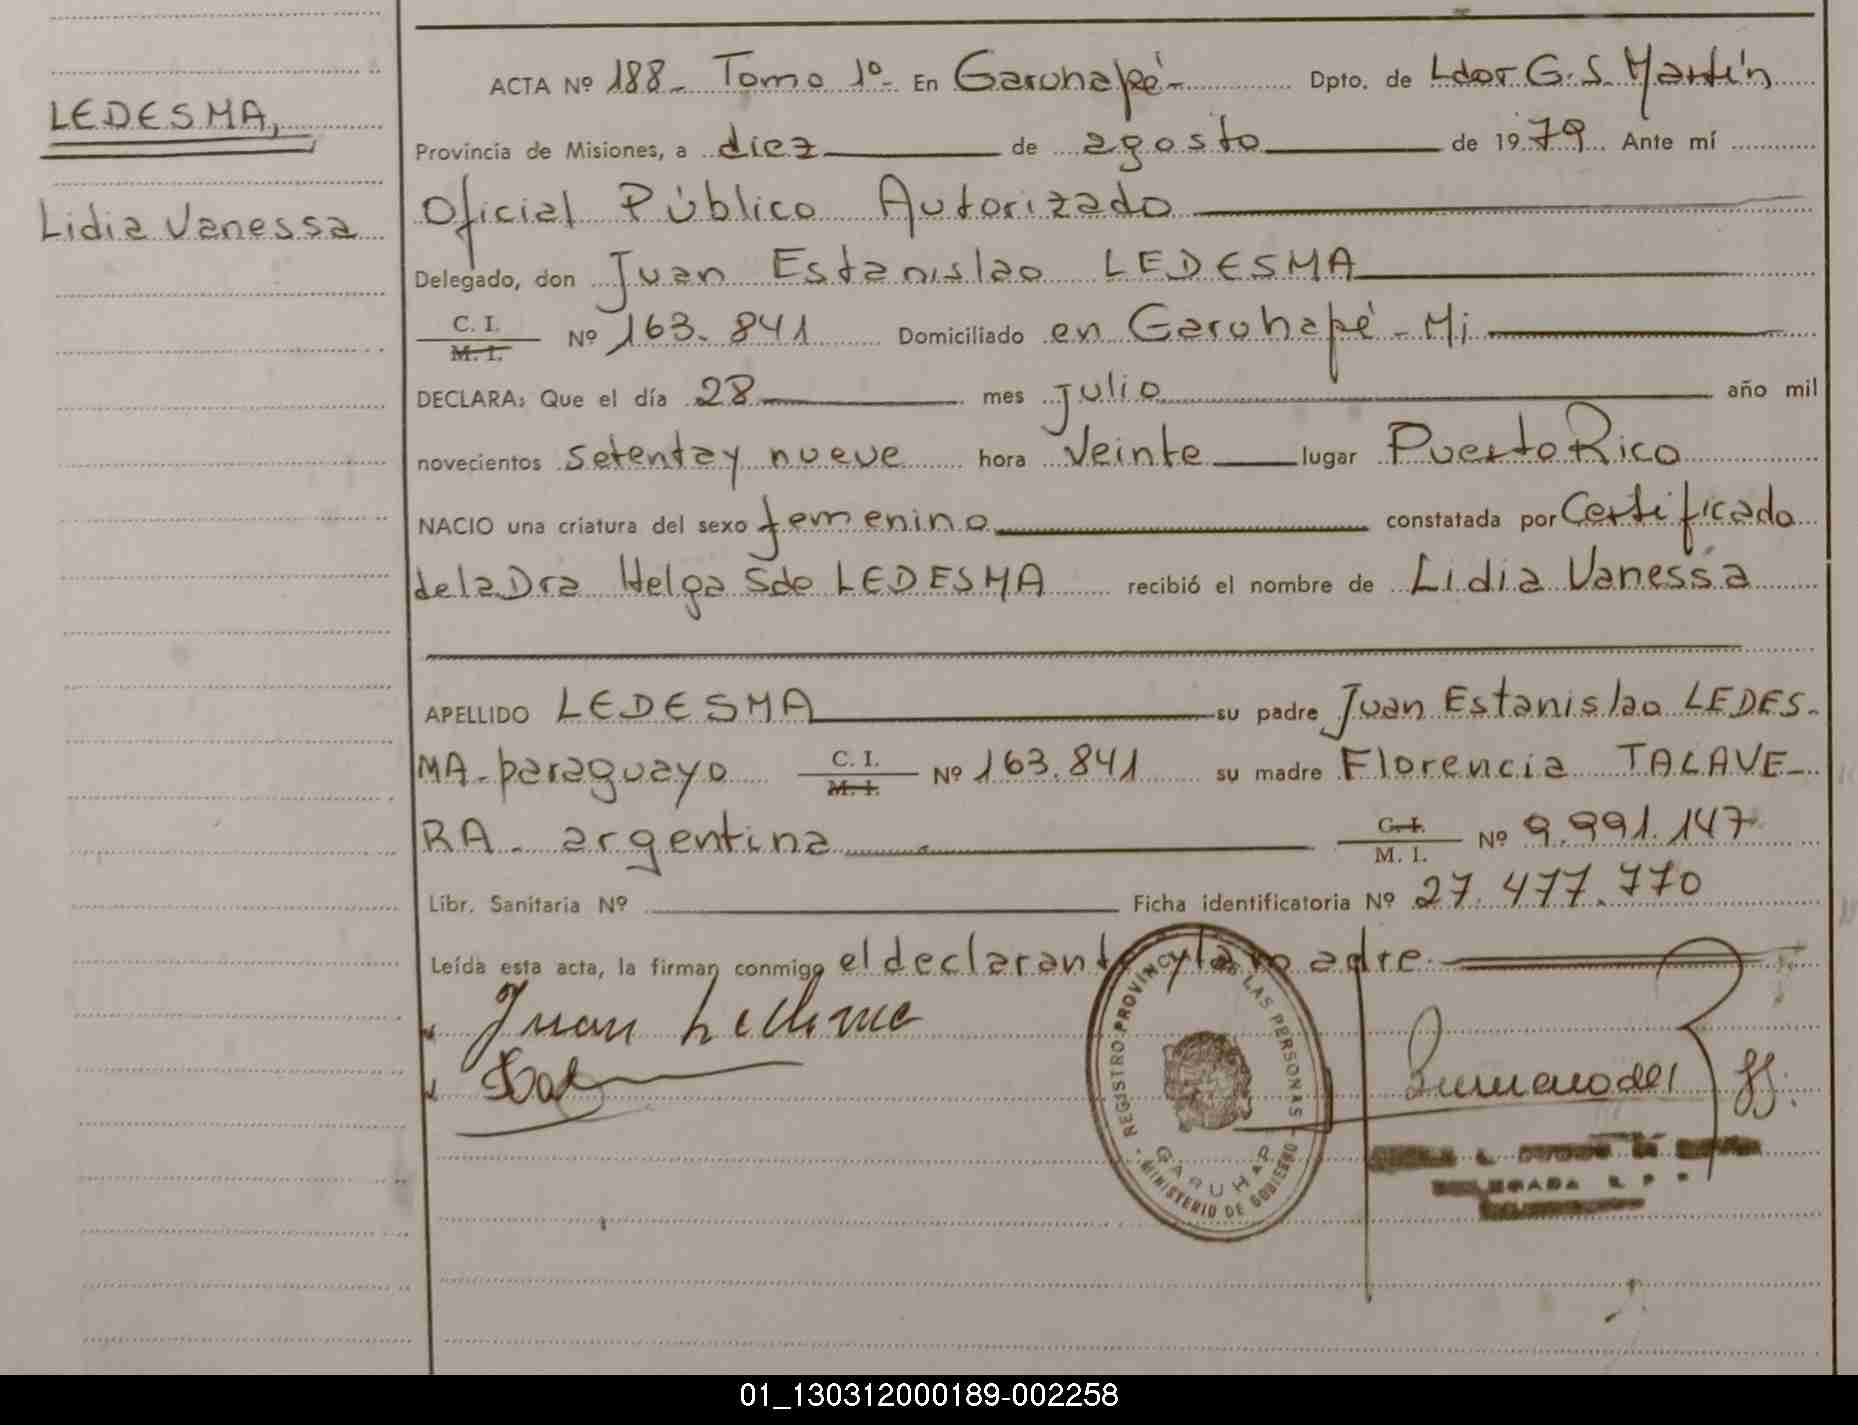 LEDESMA,
Lidia Vanessa
ACTA Nº 188- Tomo 1º- En Garuhapé- Dpto. de Ldor G. S. Martín
Provincia de Misiones, a diez de agosto de 1979 Ante mí
Oficial Público Autorizado
Delegado, don Juan Estanislao LEDESMA
C. I. M. I. Nº 163.841 Domiciliado en Garuhapé-Mi
DECLARA: Que el día 28 mes julio año mil
novecientos setenta y nueve hora veinte lugar Puerto Rico
NACIO una criatura del sexo femenino constatada por Certificado
de la Dra Helga S de LEDESMA recibió el nombre de Lidia Vanessa
APELLIDO LEDESMA su padre Juan Estanislao LEDES-
MA-paraguayo C. I. M. I. Nº 163.841 su madre Florencia TALAVE-
RA- argentina C. I. M. I. Nº 9.991.147
Libr. Sanitaria Nº Ficha identificatoria Nº 27.477.770
Leída esta acta, la firman conmigo el declarante y la madre
Juan
REGISTRO PROVINC DE LAS PERSONAS
MINISTERIO DE GOBIERNO
GARUHAP
DELEGADA R. P. P.
01_130312000189-002258